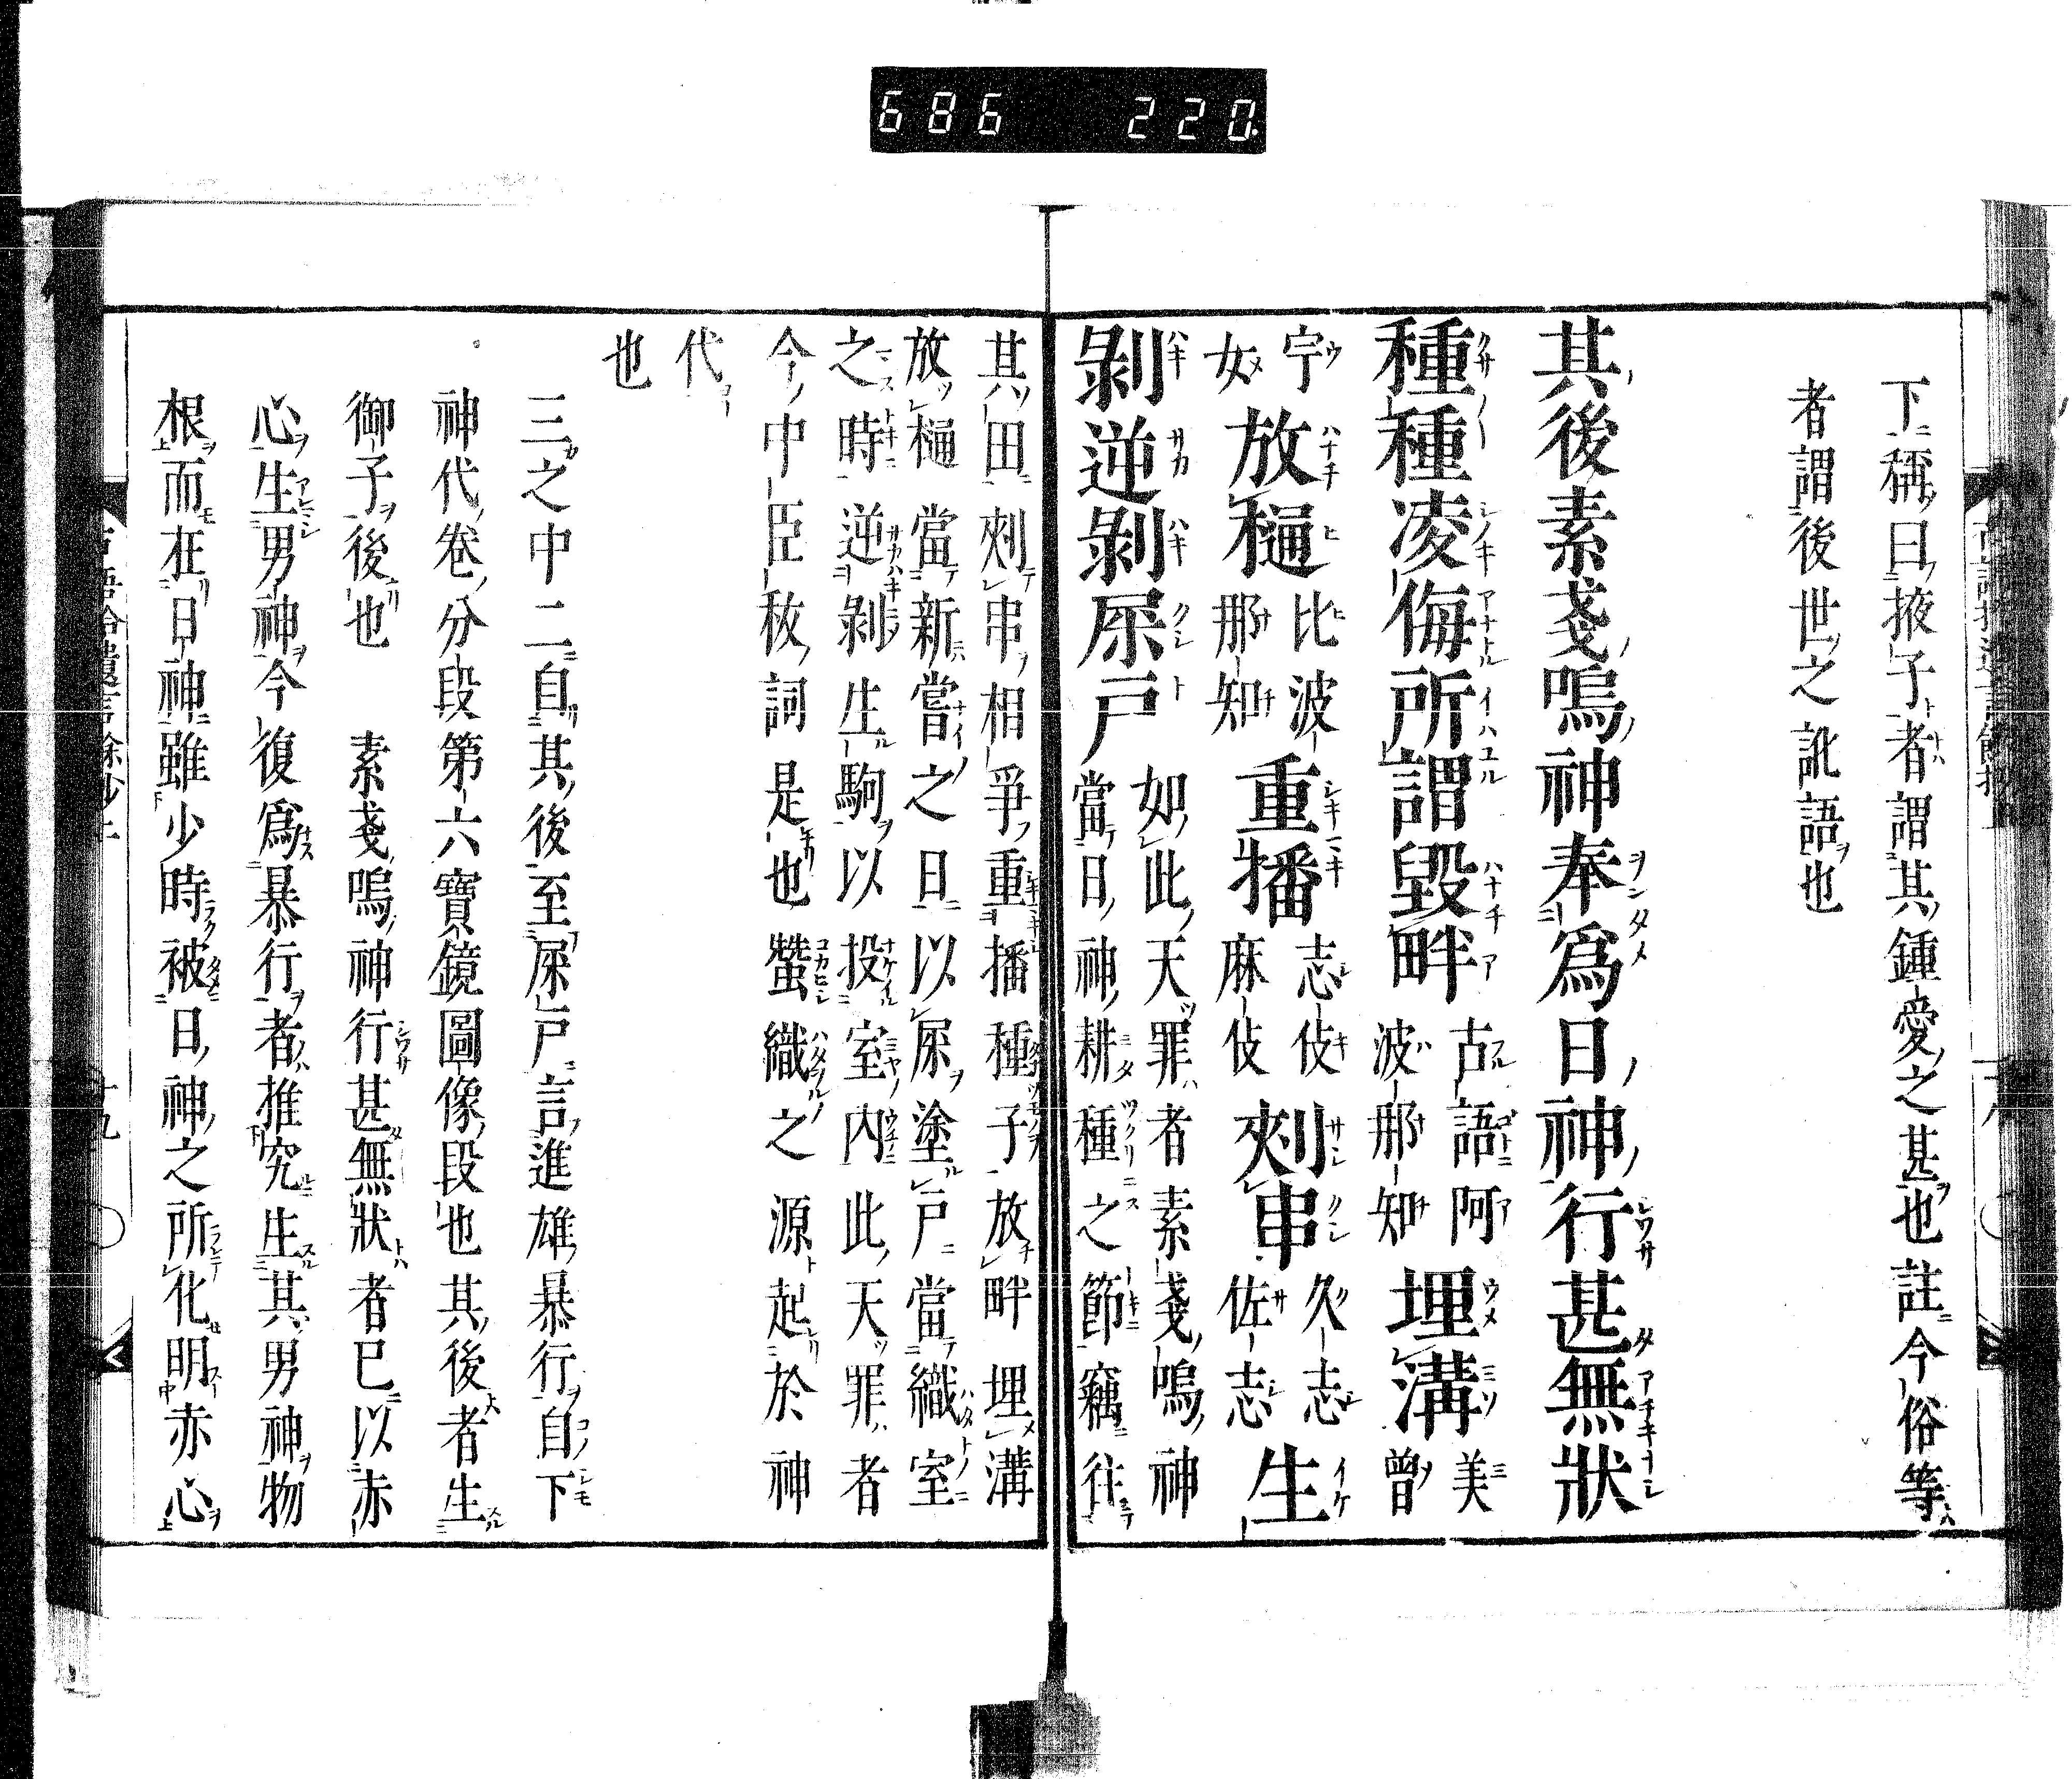 686 220
下稱曰掖子者謂其鍾愛之甚也註今俗等
者謂後世之訛語也
其後素戔嗚神奉爲日神行甚無狀
種種凌侮所謂毀畔古語阿波那知埋溝美曾
宇女放樋比波那知重播志伎麻伎刺串久志佐志生
剝逆剝屎戶如此天罪者素戔嗚神當日神耕種之節竊往
其田刺串相爭重播種子放畔埋溝
放樋當新嘗之日以屎塗戶當織室
之時逆剝生駒以投室內此天罪者
今中臣秡詞是也蠶織之源起於神
代
也
三之中二自其後至屎戶言進雄暴行自下
神代卷分段第六寶鏡圖像段也其後者生
御子後也 素戔嗚神行甚無狀者已以赤
心生男神今復爲暴行者推究生其男神物
根而在日神雖少時被日神之所化明赤心